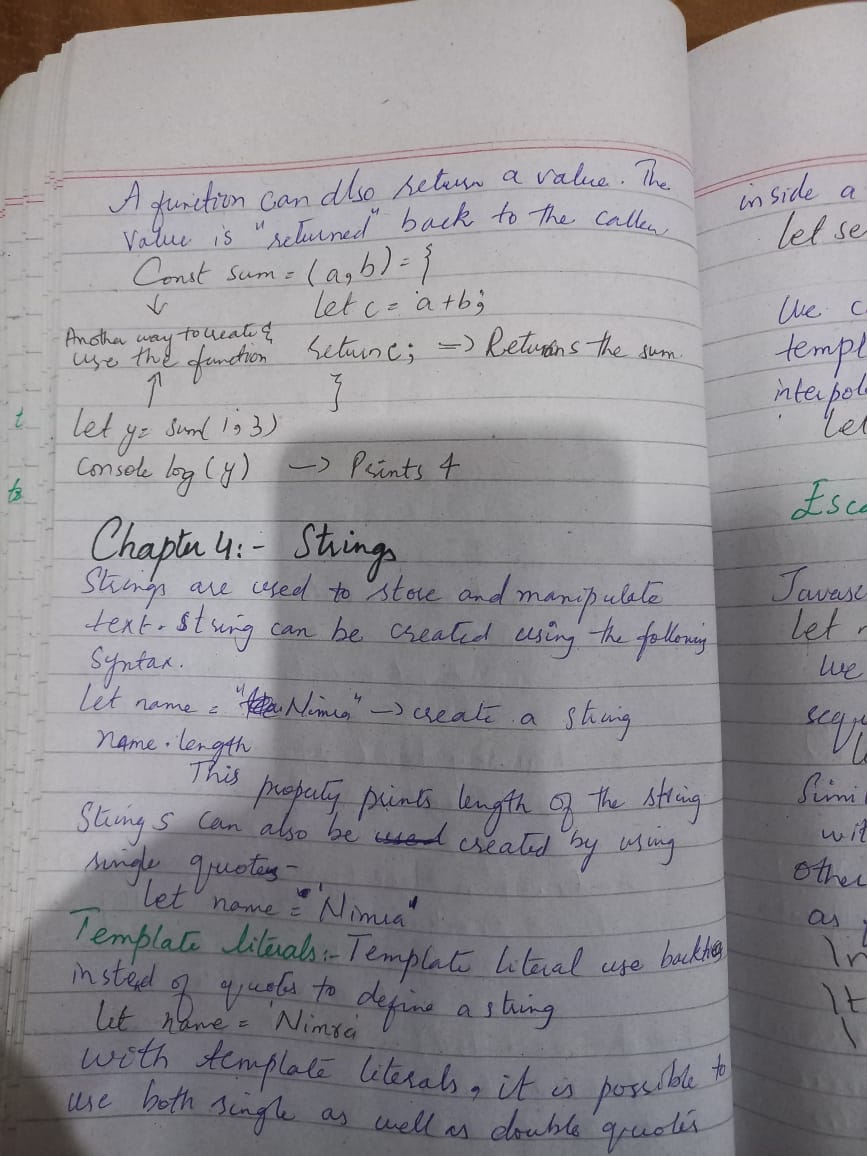 A function can also return a value. The
value is "returned" back to the caller
Const sum = (a,b) = {
let c = a+b;
Another way to create &
use the function
return c; => Returns the sum.
}
let y = sum( 1,3)
console log (y) -> Prints 4
Chapter 4:- Strings
Strings are used to store and manipulate
text. String can be created using the following
Syntax.
let name = "Nimra" -> create a string
name.length
This property prints length of the string
Strings can also be created by using
single quotes-
let name = 'Nimra'
Template literals:- Template literal use backticks
instead of quotes to define a string
let name = `Nimra`
with template literals, it is possible to
use both single as well as double quotes
inside a
let se
We c
templ
interpol
let
Esca
Javasc
let
We
sequ
Simi
wit
other
as